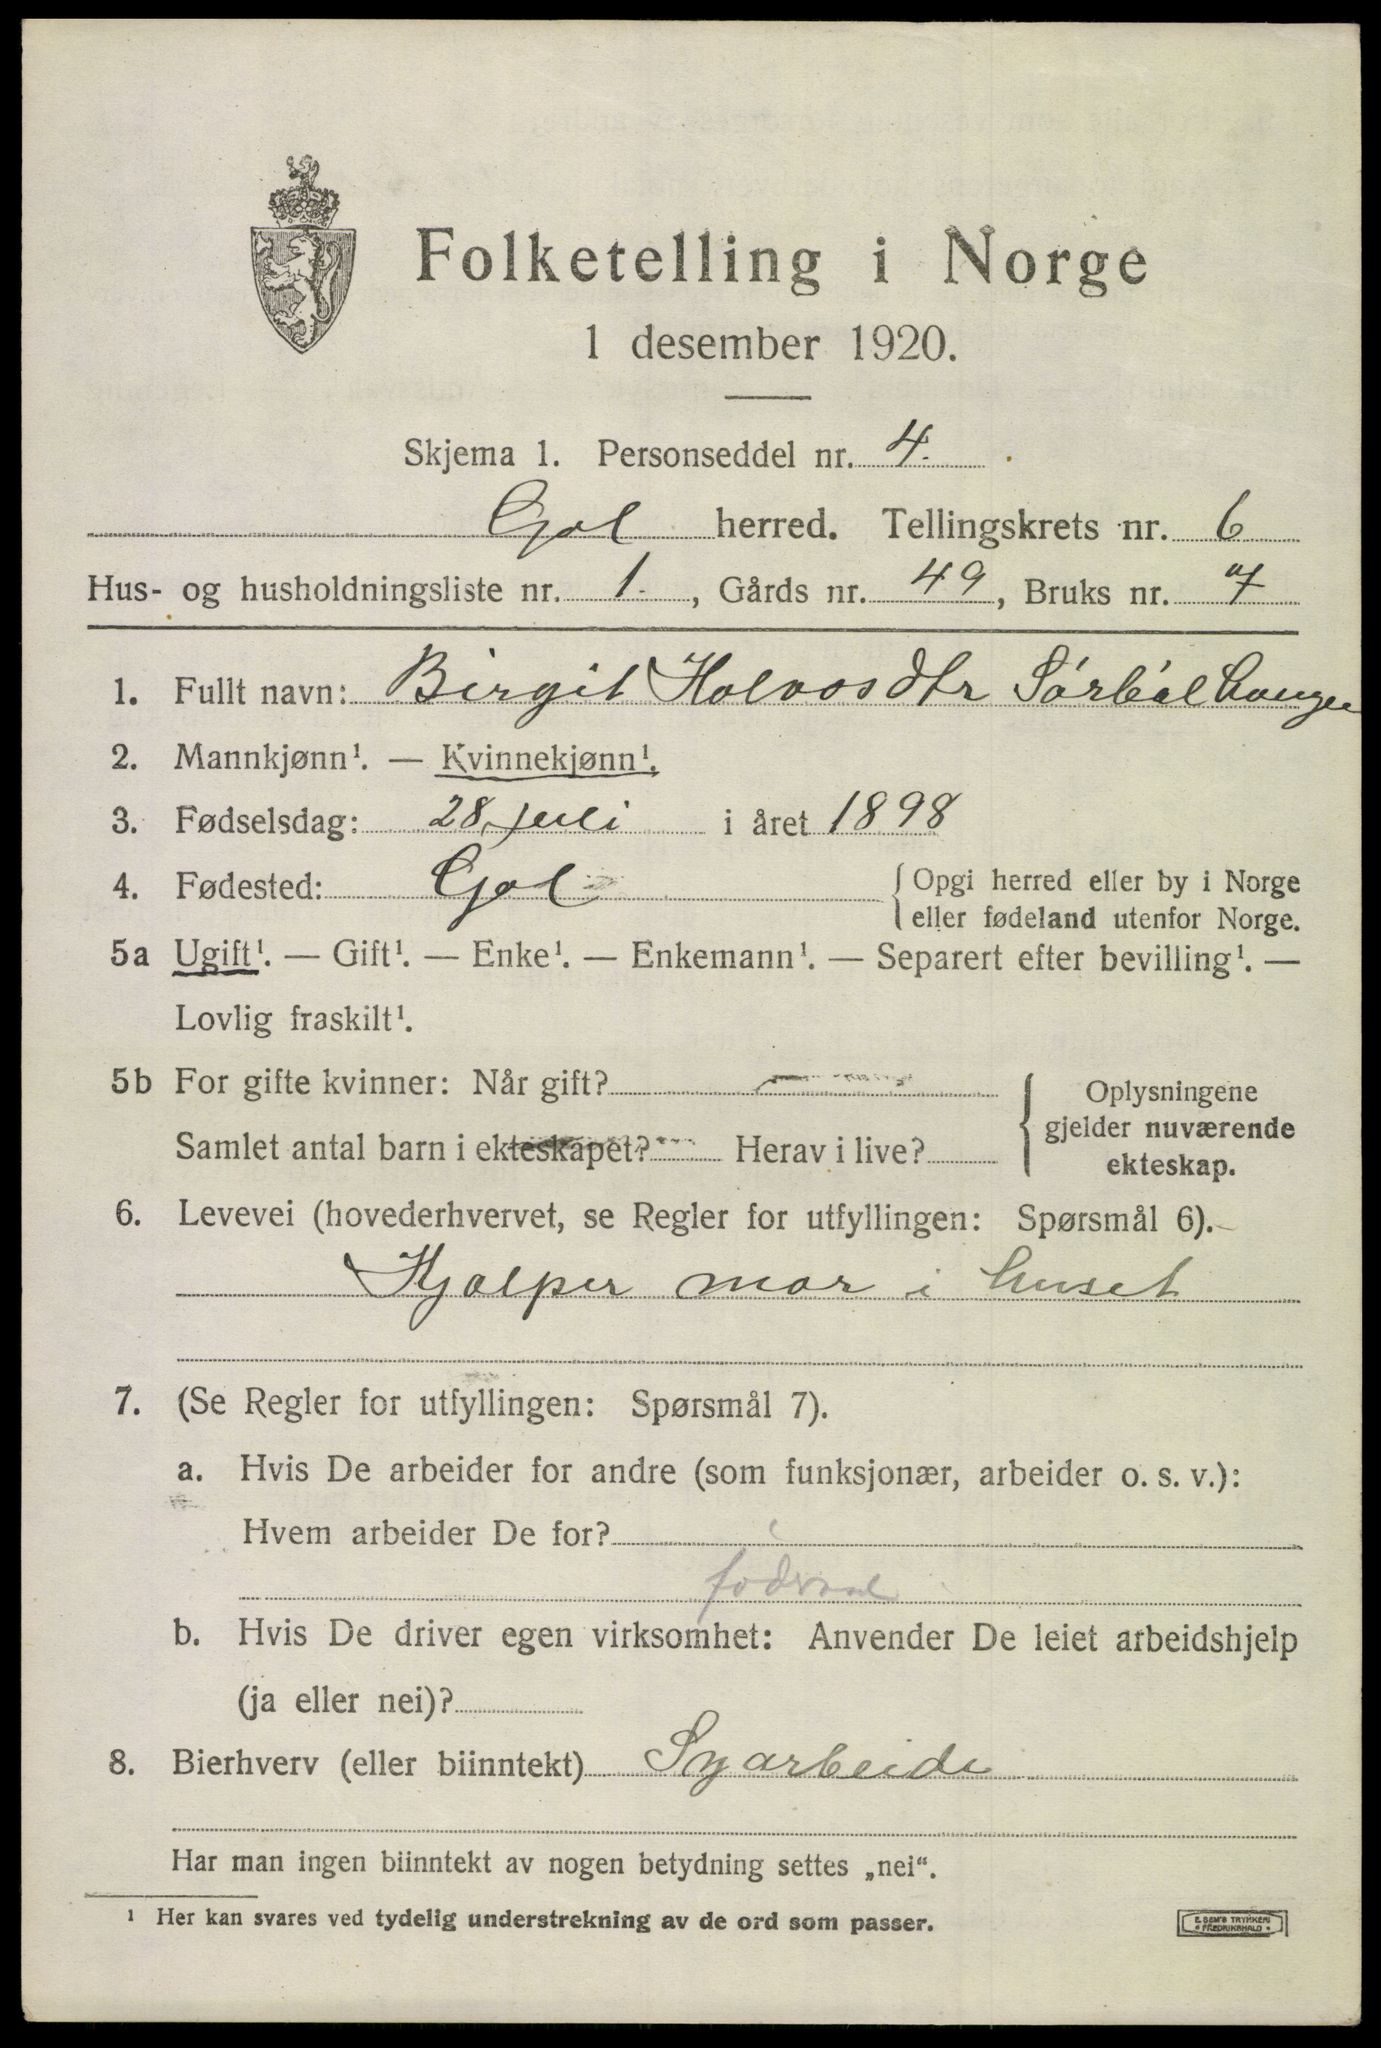 Folketelling i Norge
1 desember 1920.
Skjema 1. Personseddel nr. 4.
Gol herred. Tellingskrets nr. 6
Hus- og husholdningsliste nr. 1. , Gårds nr. 49 , Bruks nr. 7
1. Fullt navn: Birgit Halvosdtr Sørbøl
2. Mannkjønn¹. — Kvinnekjønn¹.
3. Fødselsdag: 28 juli i året 1898
4. Fødested: Gol { Opgi herred eller by i Norge
eller fødeland utenfor Norge.
5a Ugift¹. — Gift¹. — Enke¹. — Enkemann¹. — Separert efter bevilling¹. —
Lovlig fraskilt¹.
5b For gifte kvinner: Når gift?
Samlet antal barn i ekteskapet? Herav i live?
{ Oplysningene
gjelder nuværende
ekteskap.
6. Levevei (hovederhvervet, se Regler for utfyllingen: Spørsmål 6).
Hjælper mor i huset
7. (Se Regler for utfyllingen: Spørsmål 7).
a. Hvis De arbeider for andre (som funksjonær, arbeider o. s. v.):
Hvem arbeider De for?
b. Hvis De driver egen virksomhet: Anvender De leiet arbeidshjelp
(ja eller nei)?
8. Bierhverv (eller biinntekt) Syarbeide
Har man ingen biinntekt av nogen betydning settes „nei“.
¹ Her kan svares ved tydelig understrekning av de ord som passer.
E. SEM'S TRYKKERI
FREDRIKSHALD